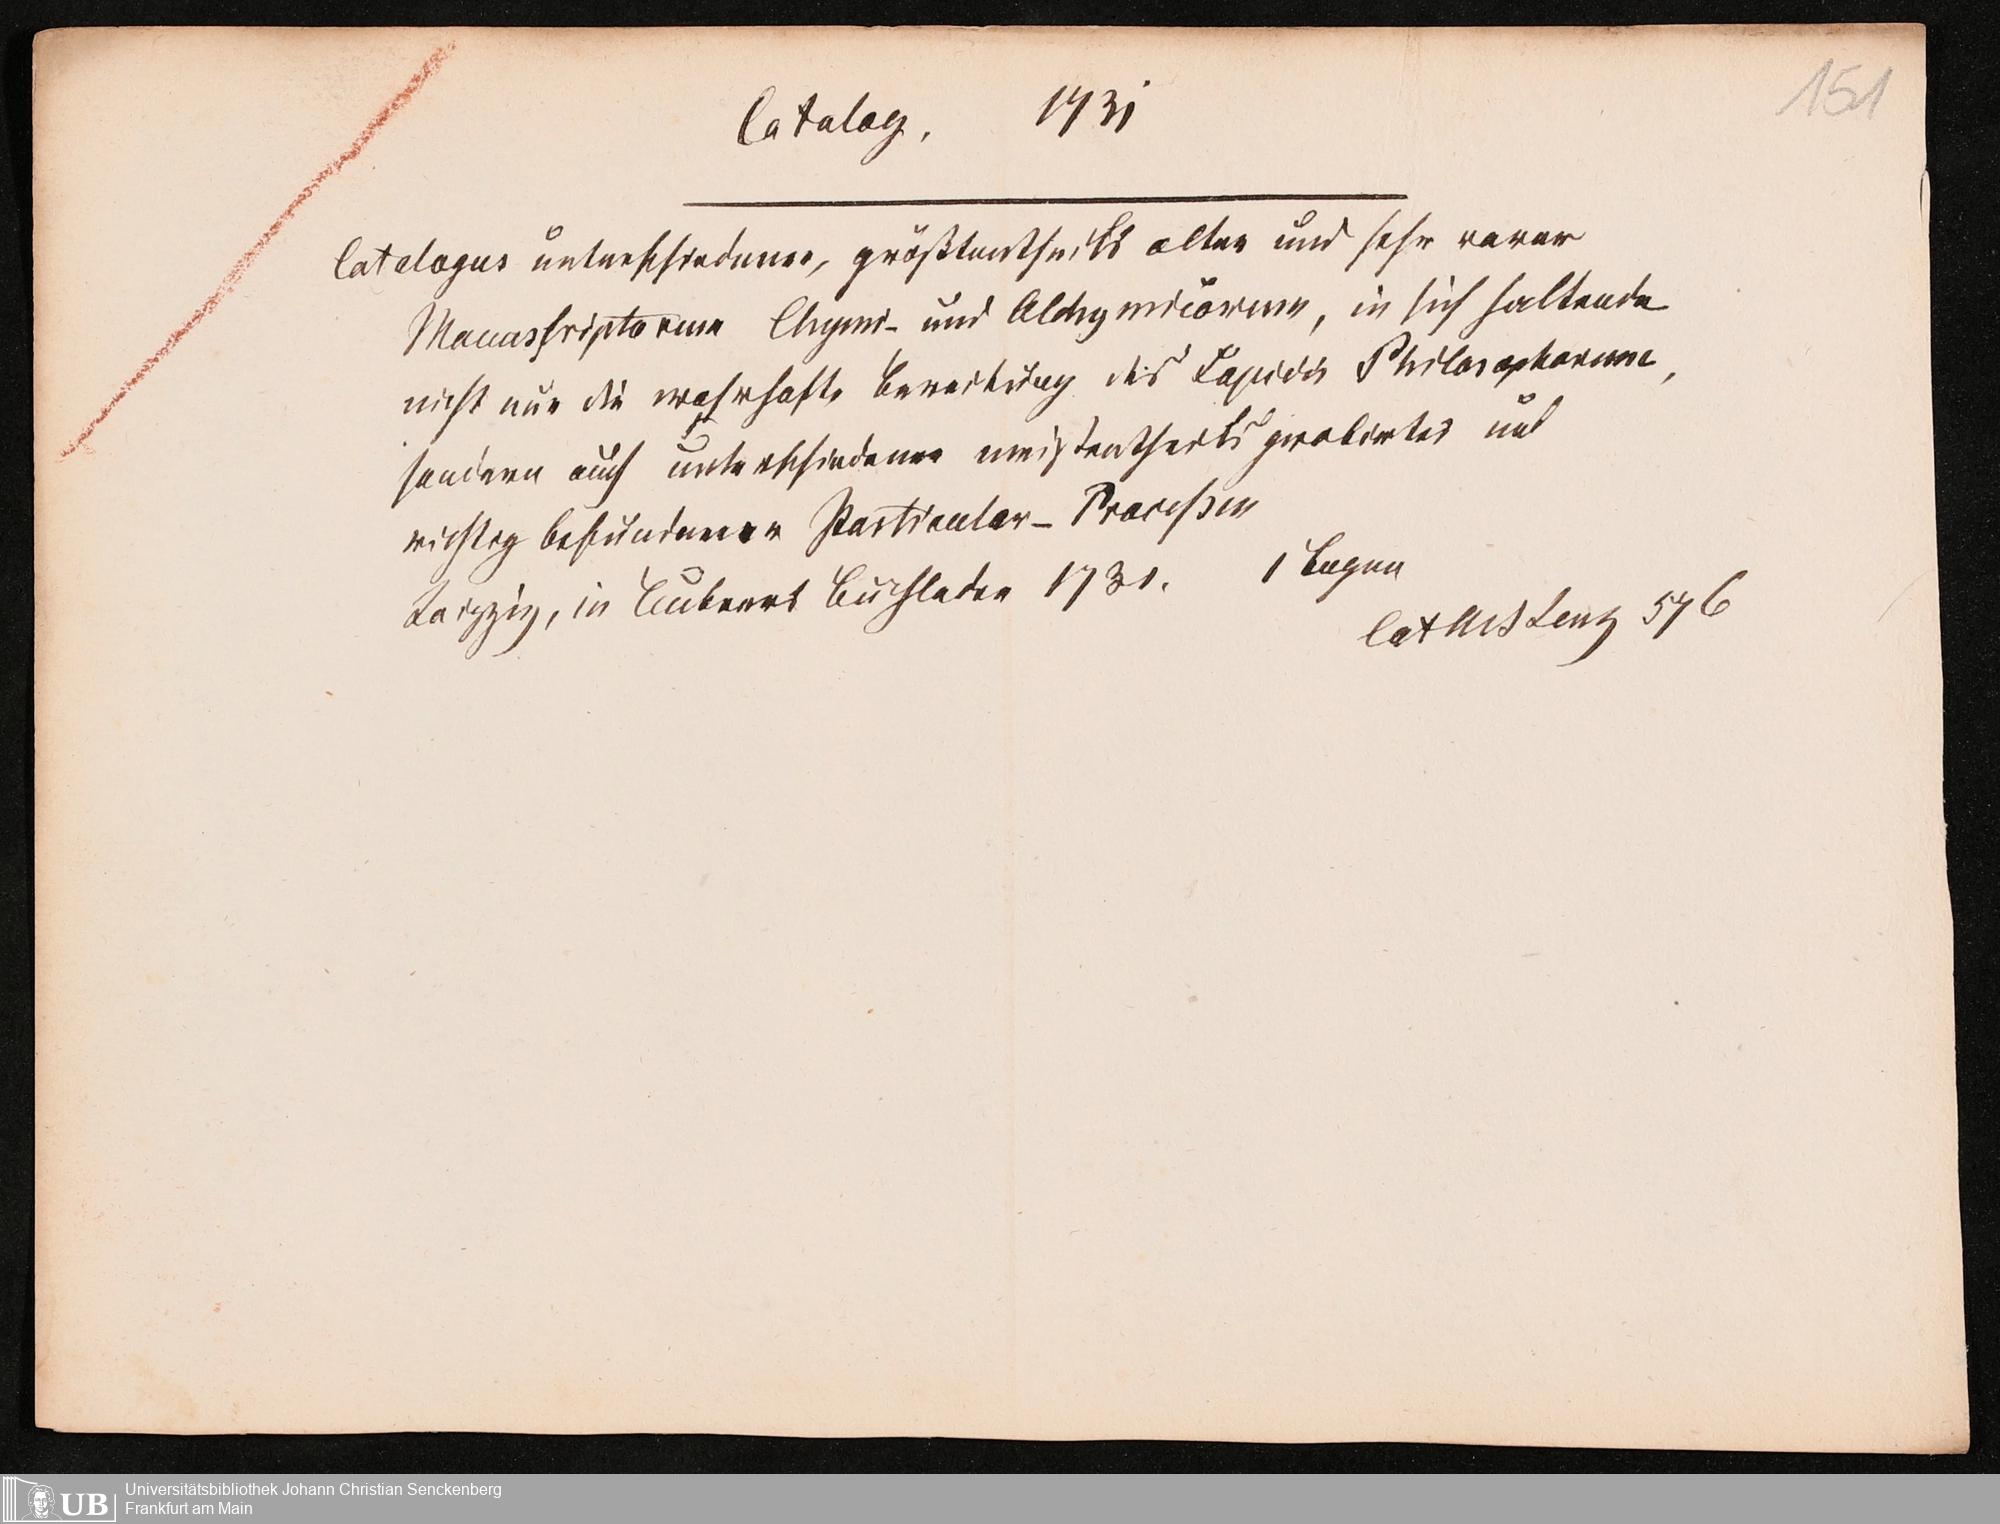 151
Catalog, 1731
Catalogus unterschiedener, größtentheils alter und sehr rarer
Manusscriptorum Chymi- und Alchymicorum, in sich haltende
nicht nur die wahrhafte Bereitung des Lapidis Philosophorum,
sondern auch unterschiedener meistentheils probirter und
richtig befundener Particular-Processen
Leipzig, in Buchladen 1731. 1 Bogen
Cat Lenz 576
Universitätsbibliothek Johann Christian Senckenberg
UB Frankfurt am Main